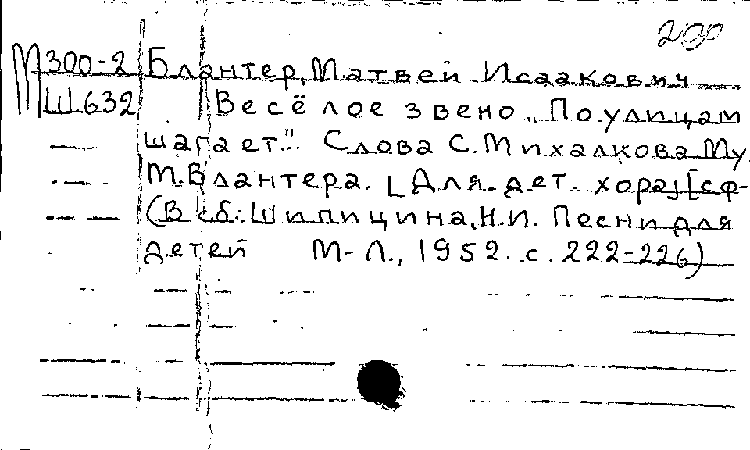 200
М300-2 Блантер, Матвей Исаакович
Ш632 Весёлое звено „По улицам
шагает." Слова С. Михалкова Му
М. Блантера. [Для дет. хора] [с ф-
(В сб.: Шипицина, Н.И. Песни для
детей М-Л., 1952. с. 222-226)